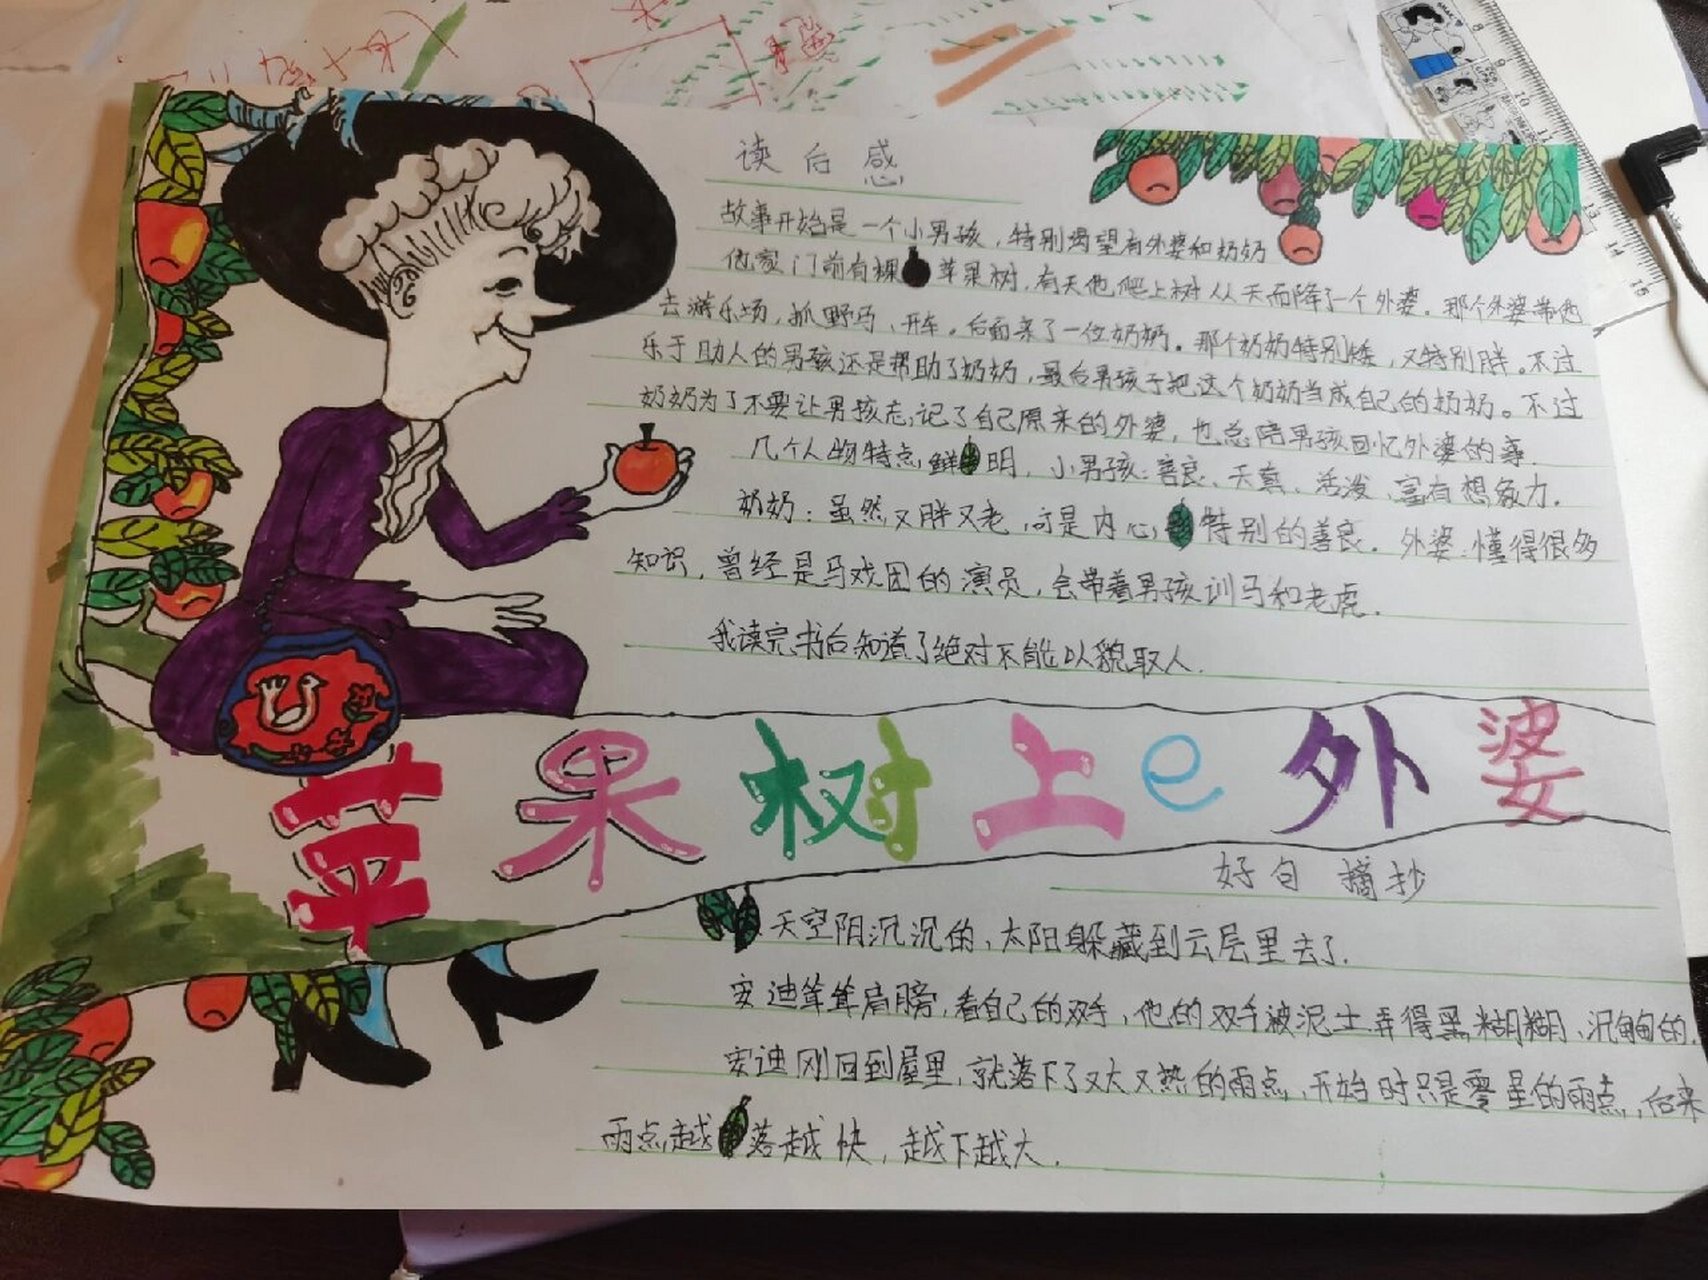 读后感
故事开始是一个小男孩，特别渴望有外婆和奶奶
他家门前有棵苹果树，有天他爬上树从天而降了一个外婆。那个外婆带他
去游乐场，抓野马、开车。后面来了一位奶奶。那个奶奶特别矮，又特别胖。不过
乐于助人的男孩还是帮助了奶奶，最后男孩子把这个奶奶当成自己的奶奶。不过
奶奶为了不要让男孩忘记了自己原来的外婆，也总陪男孩回忆外婆的事．
几个人物特点鲜明，小男孩：善良、天真、活泼、富有想象力．
奶奶：虽然又胖又老，可是内心特别的善良．外婆：懂得很多
知识，曾经是马戏团的演员，会带着男孩训马和老虎．
我读完书后知道了绝对不能以貌取人．
苹果树上e外婆
好句摘抄
天空阴沉沉的，太阳躲藏到云层里去了．
安迪耸耸肩膀，看自己的双手，他的双手被泥土弄得黑糊糊、沉甸甸的．
安迪刚回到屋里，就落下了又大又热的雨点，开始时只是零星的雨点，后来
雨点越落越快，越下越大．